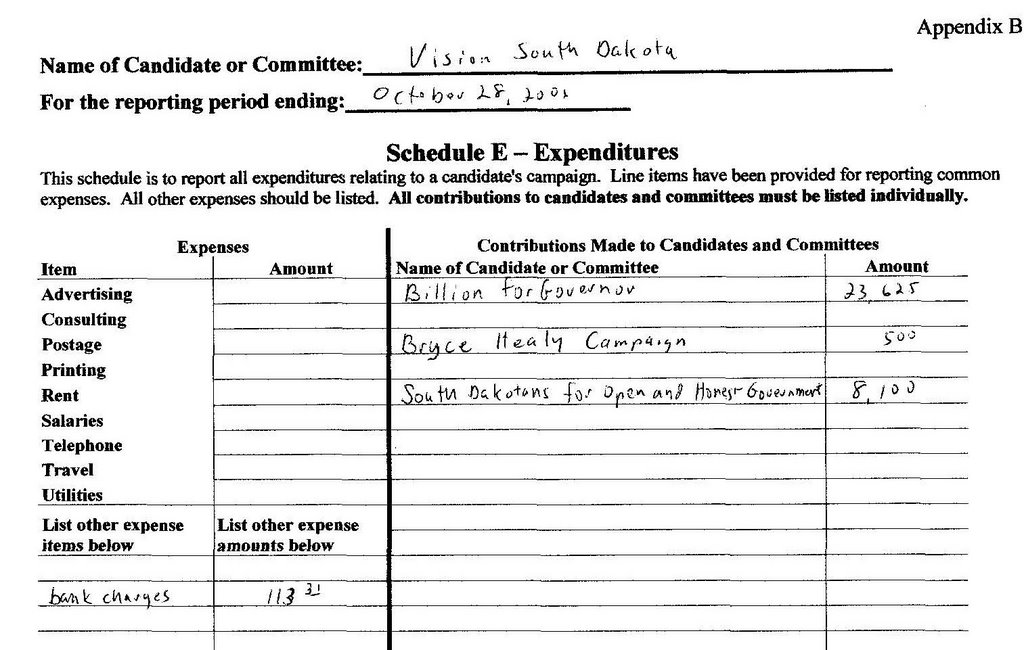 Appendix B
Name of Candidate or Committee: Vision South Dakota
For the reporting period ending: October 28,
Schedule E – Expenditures
This schedule is to report all expenditures relating to a candidate's campaign. Line items have been provided for reporting common
expenses. All other expenses should be listed. All contributions to candidates and committees must be listed individually.
Expenses Contributions Made to Candidates and Committees
Item Amount Name of Candidate or Committee Amount
Advertising Billion for Governor 23,625
Consulting
Postage Bryce Healy Campaign 500
Printing
Rent South Dakotans for Open and Honest Government 8,100
Salaries
Telephone
Travel
Utilities
List other expense List other expense
items below amounts below
bank charges 113 31